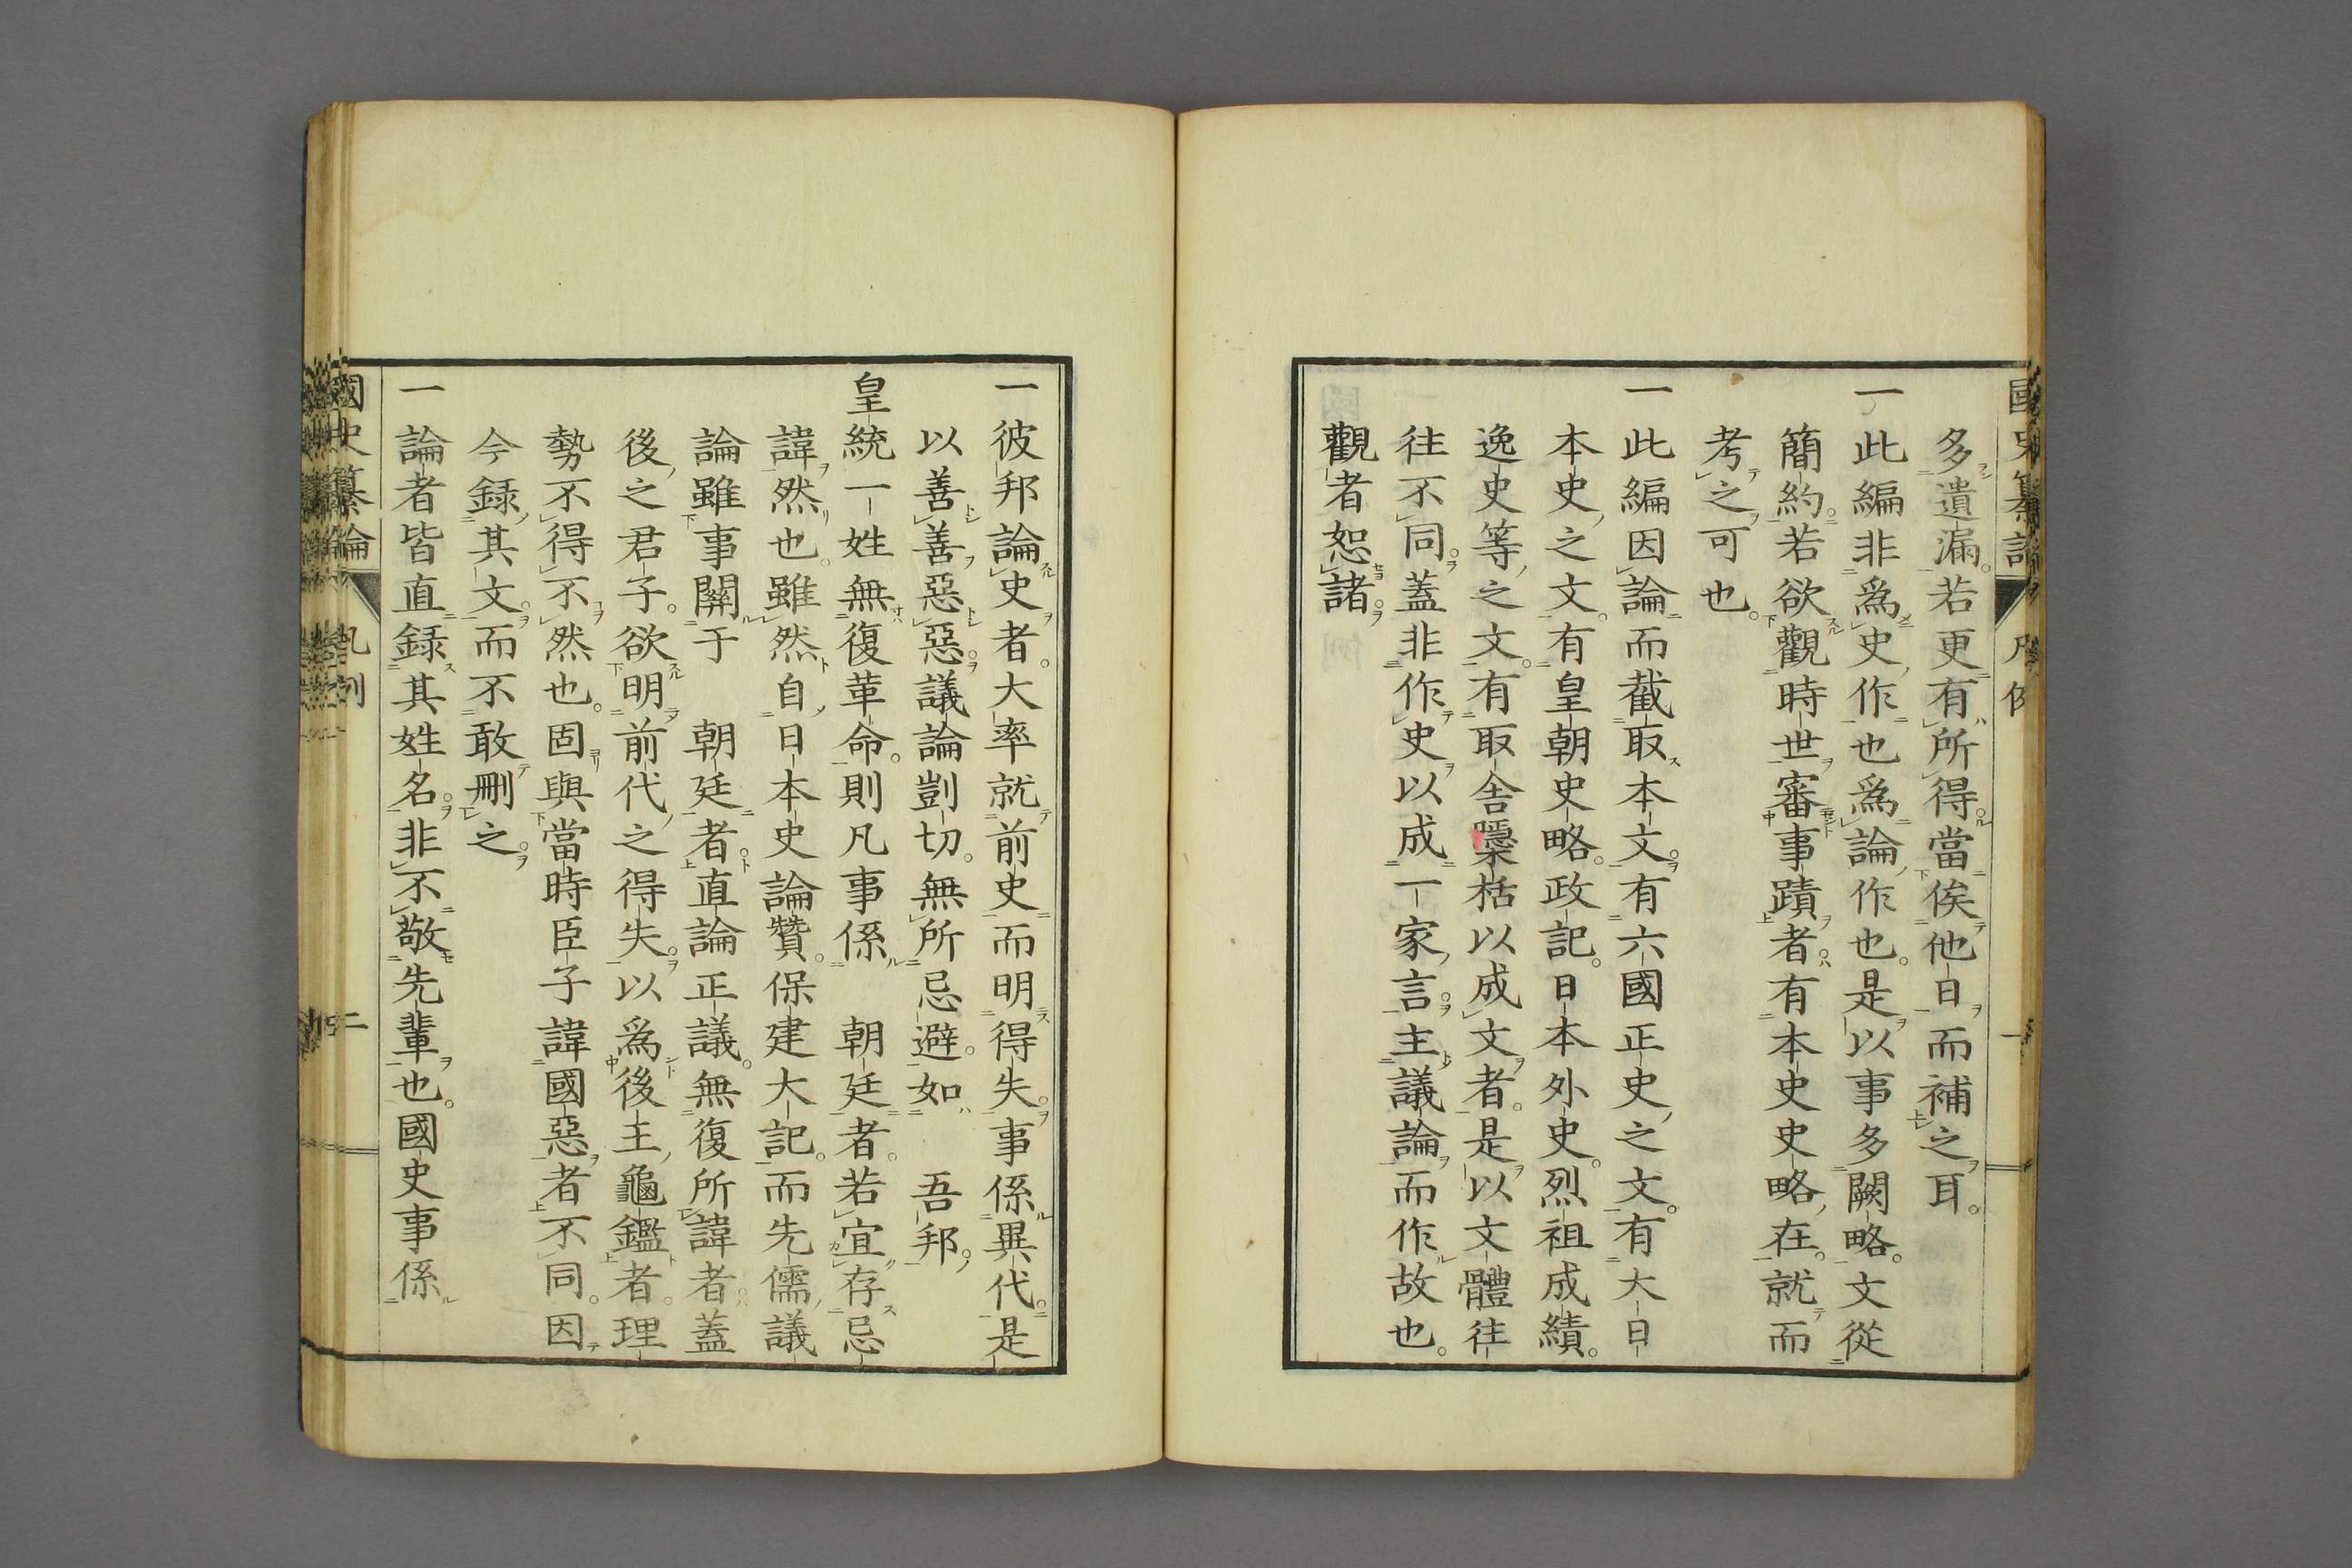 多遺漏。若更有所得。當俟他日而補之耳。
一此編非爲史作也爲論作也。是以事多闕略。文從
簡約。若欲觀時世審事蹟者。有本史史略在。就而
考之可也。
一此編因論而截取本文。有六國正史之文。有大日
本史之文。有皇朝史略。政記。日本外史。烈祖成績。
逸史等之文。有取舍檃栝以成文者。是以文體往
往不同。蓋非作史以成一家言。主議論而作故也。
觀者恕諸。
一彼邦論史者。大率就前史而明得失。事係異代。是
以善善惡惡。議論剴切。無所忌避。如 吾邦。
皇統一姓無復革命。則凡事係 朝廷者。若宜存忌
諱然也。雖然自日本史論贊。保建大記。而先儒議
論雖事關于 朝廷者。直論正議。無復所諱者。蓋
後之君子。欲明前代之得失。以爲後王龜鑑者。理
勢不得不然也。固與當時臣子諱國惡者不同。因
今録其文。而不敢刪之。
一論者皆直録其姓名。非不敬先輩也。國史事係
國史纂論 凡例 二